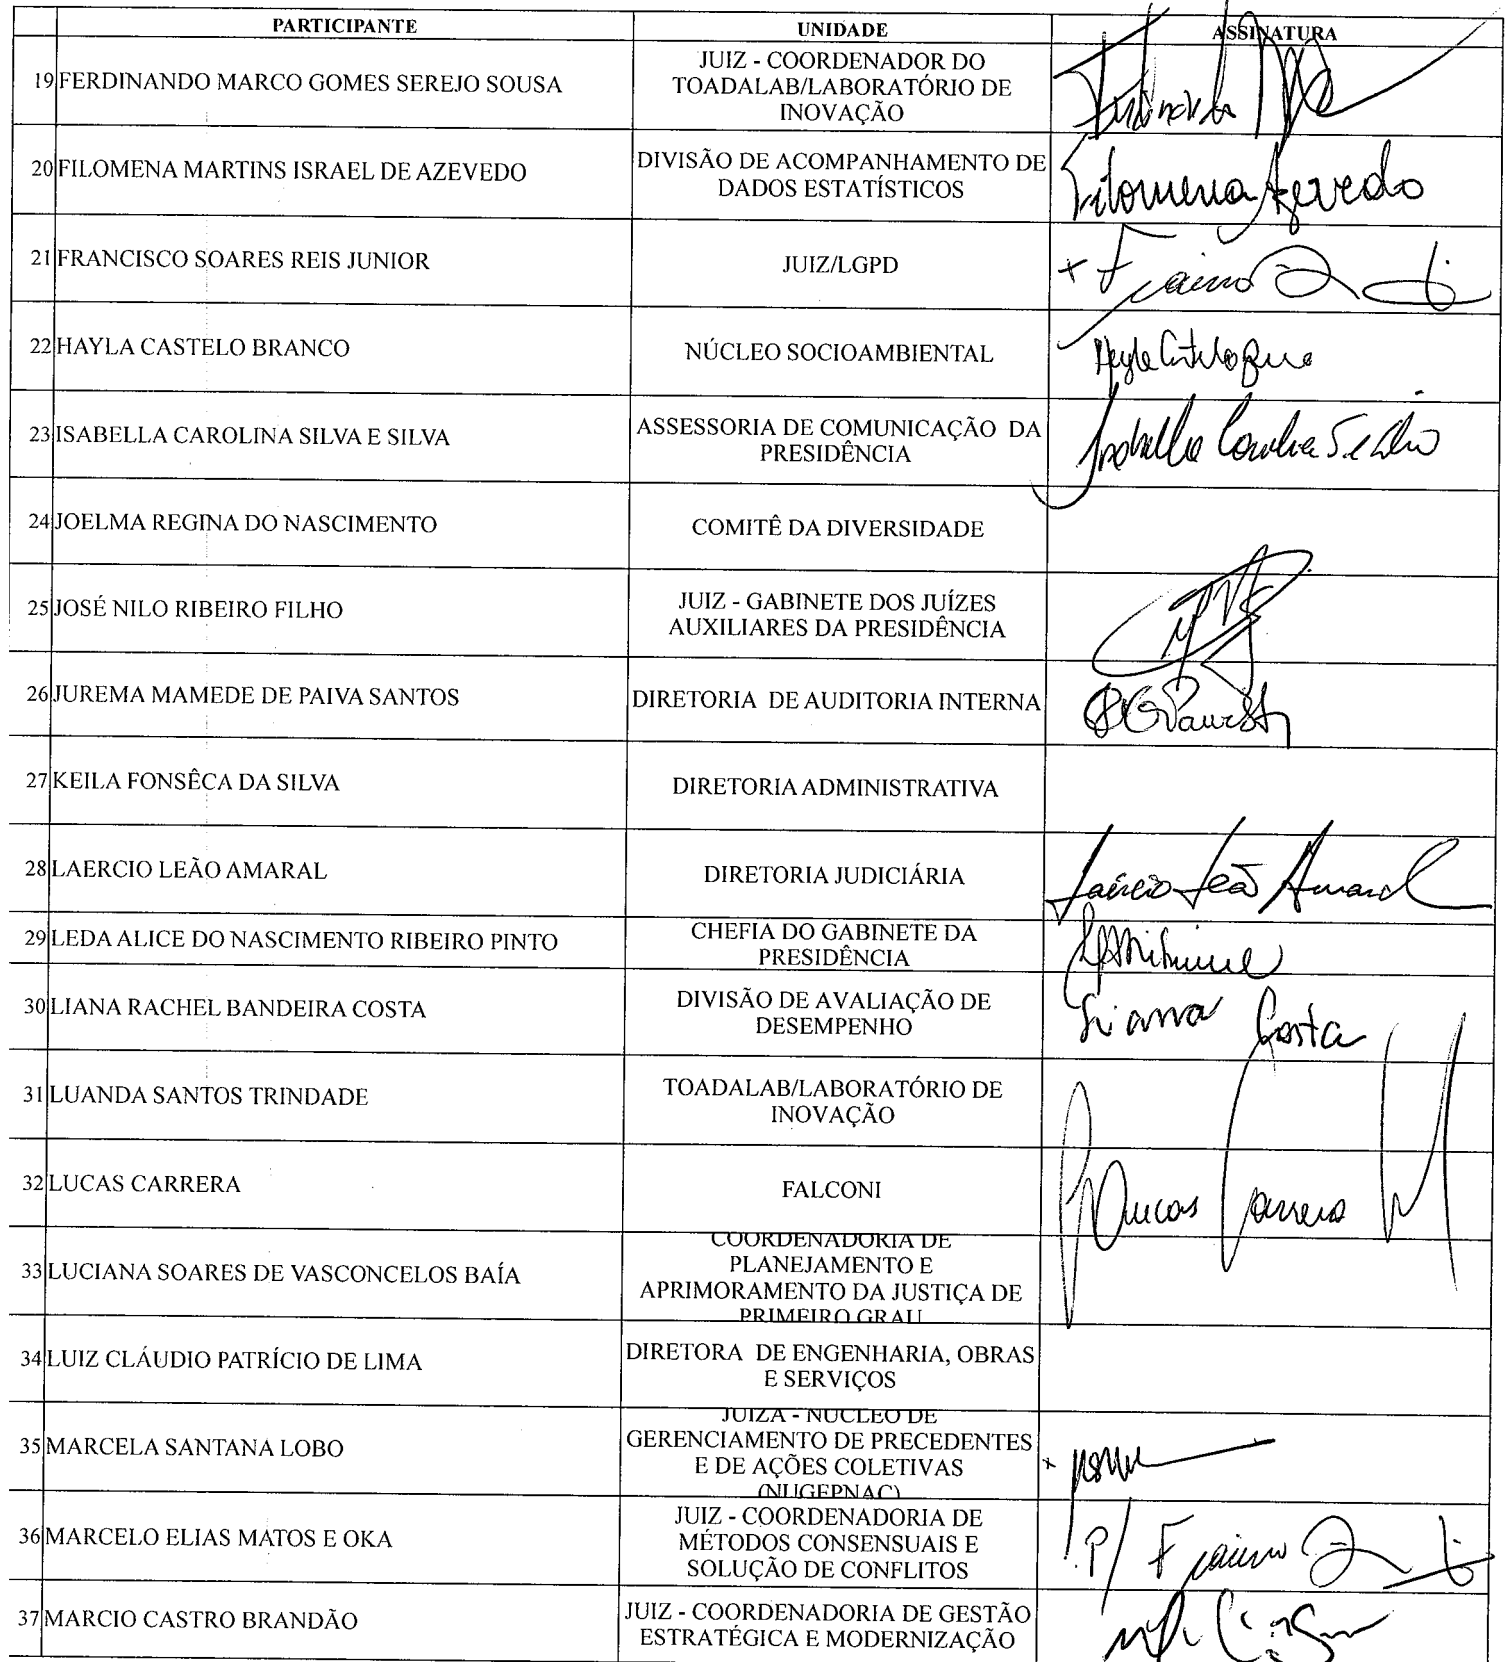 PARTICIPANTE UNIDADE ASSINATURA
19 FERDINANDO MARCO GOMES SEREJO SOUSA
JUIZ - COORDENADOR DO
TOADALAB/LABORATÓRIO DE
INOVAÇÃO
20 FILOMENA MARTINS ISRAEL DE AZEVEDO
DIVISÃO DE ACOMPANHAMENTO DE
DADOS ESTATÍSTICOS
Filomena Azevedo
21 FRANCISCO SOARES REIS JUNIOR
JUIZ/LGPD
22 HAYLA CASTELO BRANCO
NÚCLEO SOCIOAMBIENTAL
23 ISABELLA CAROLINA SILVA E SILVA
ASSESSORIA DE COMUNICAÇÃO DA
PRESIDÊNCIA
24 JOELMA REGINA DO NASCIMENTO
COMITÊ DA DIVERSIDADE
25 JOSÉ NILO RIBEIRO FILHO
JUIZ - GABINETE DOS JUÍZES
AUXILIARES DA PRESIDÊNCIA
26 JUREMA MAMEDE DE PAIVA SANTOS
DIRETORIA DE AUDITORIA INTERNA
27 KEILA FONSÊCA DA SILVA
DIRETORIA ADMINISTRATIVA
28 LAERCIO LEÃO AMARAL
DIRETORIA JUDICIÁRIA
Laércio Leão Amaral
29 LEDA ALICE DO NASCIMENTO RIBEIRO PINTO
CHEFIA DO GABINETE DA
PRESIDÊNCIA
30 LIANA RACHEL BANDEIRA COSTA
DIVISÃO DE AVALIAÇÃO DE
DESEMPENHO
Liana Costa
31 LUANDA SANTOS TRINDADE
TOADALAB/LABORATÓRIO DE
INOVAÇÃO
32 LUCAS CARRERA
FALCONI
Lucas Carrera
33 LUCIANA SOARES DE VASCONCELOS BAÍA
COORDENADORIA DE
PLANEJAMENTO E
APRIMORAMENTO DA JUSTIÇA DE
PRIMEIRO GRAU
34 LUIZ CLÁUDIO PATRÍCIO DE LIMA
DIRETORA DE ENGENHARIA, OBRAS
E SERVIÇOS
35 MARCELA SANTANA LOBO
JUIZA - NÚCLEO DE
GERENCIAMENTO DE PRECEDENTES
E DE AÇÕES COLETIVAS
(NUGEPNAC)
36 MARCELO ELIAS MATOS E OKA
JUIZ - COORDENADORIA DE
MÉTODOS CONSENSUAIS E
SOLUÇÃO DE CONFLITOS
P/
37 MARCIO CASTRO BRANDÃO
JUIZ - COORDENADORIA DE GESTÃO
ESTRATÉGICA E MODERNIZAÇÃO